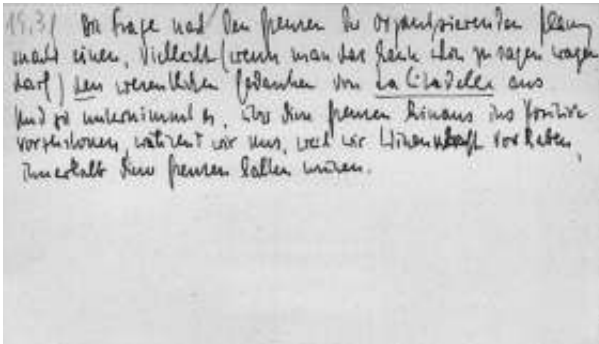 19.3/ Die Frage nach den Grenzen der organisierenden Planung
macht einen, vielleicht (wenn man das heute schon zu sagen wagen
darf) den wesentlichen Gedanken von La Citadelle aus
Und sie unternimmt es, über diese Grenzen hinaus ins Positive
vorzustossen, während wir uns, weil wir Wissenschaft vorhaben,
innerhalb dieser Grenzen halten müssen.